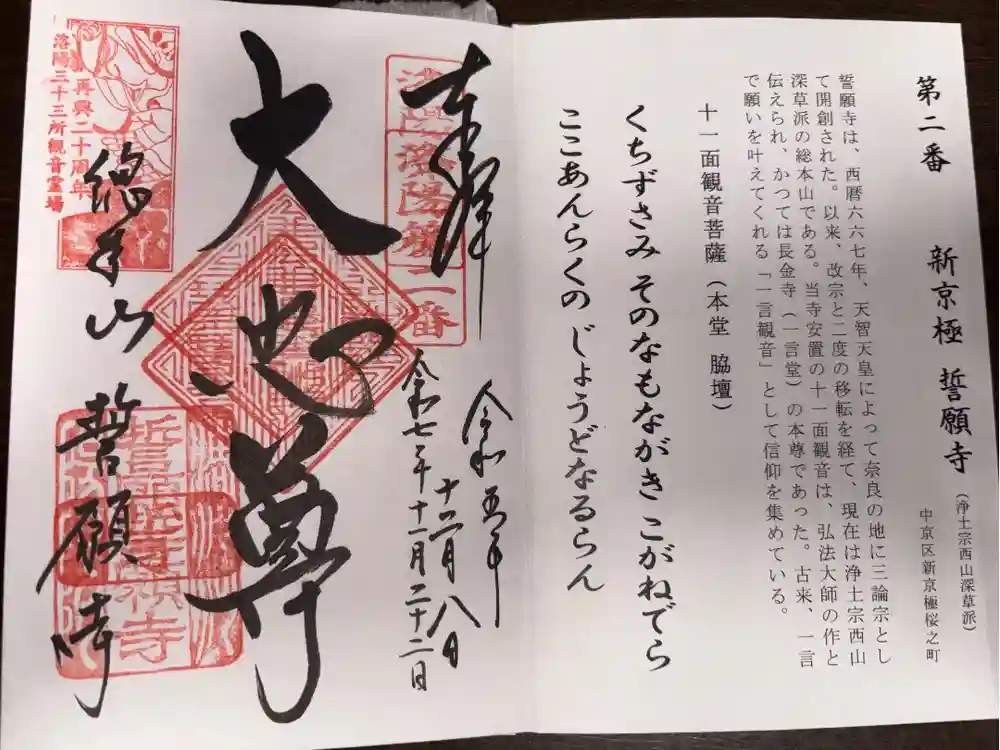 第二番 新京極 誓願寺(浄土宗西山深草派)
中京区新京極桜之町
誓願寺は、西暦六六七年、天智天皇によって奈良の地に三論宗とし
て開創された。以来、改宗と二度の移転を経て、現在は浄土宗西山
深草派の総本山である。当寺安置の十一面観音は、弘法大師の作と
伝えられ、かつては長金寺(一言堂)の本尊であった。古来、一言
で願いを叶えてくれる「一言観音」として信仰を集めている。
十一面観音菩薩(本堂 脇壇)
くちずさみ そのなもながき こがねでら
ここあんらくの じょうどなるらん
奉拝
令和五年
十二月八日
令和七年十一月二十二日
洛陽第二番
大悲尊
総本山 誓願寺
再興二十周年
洛陽三十三所観音霊場